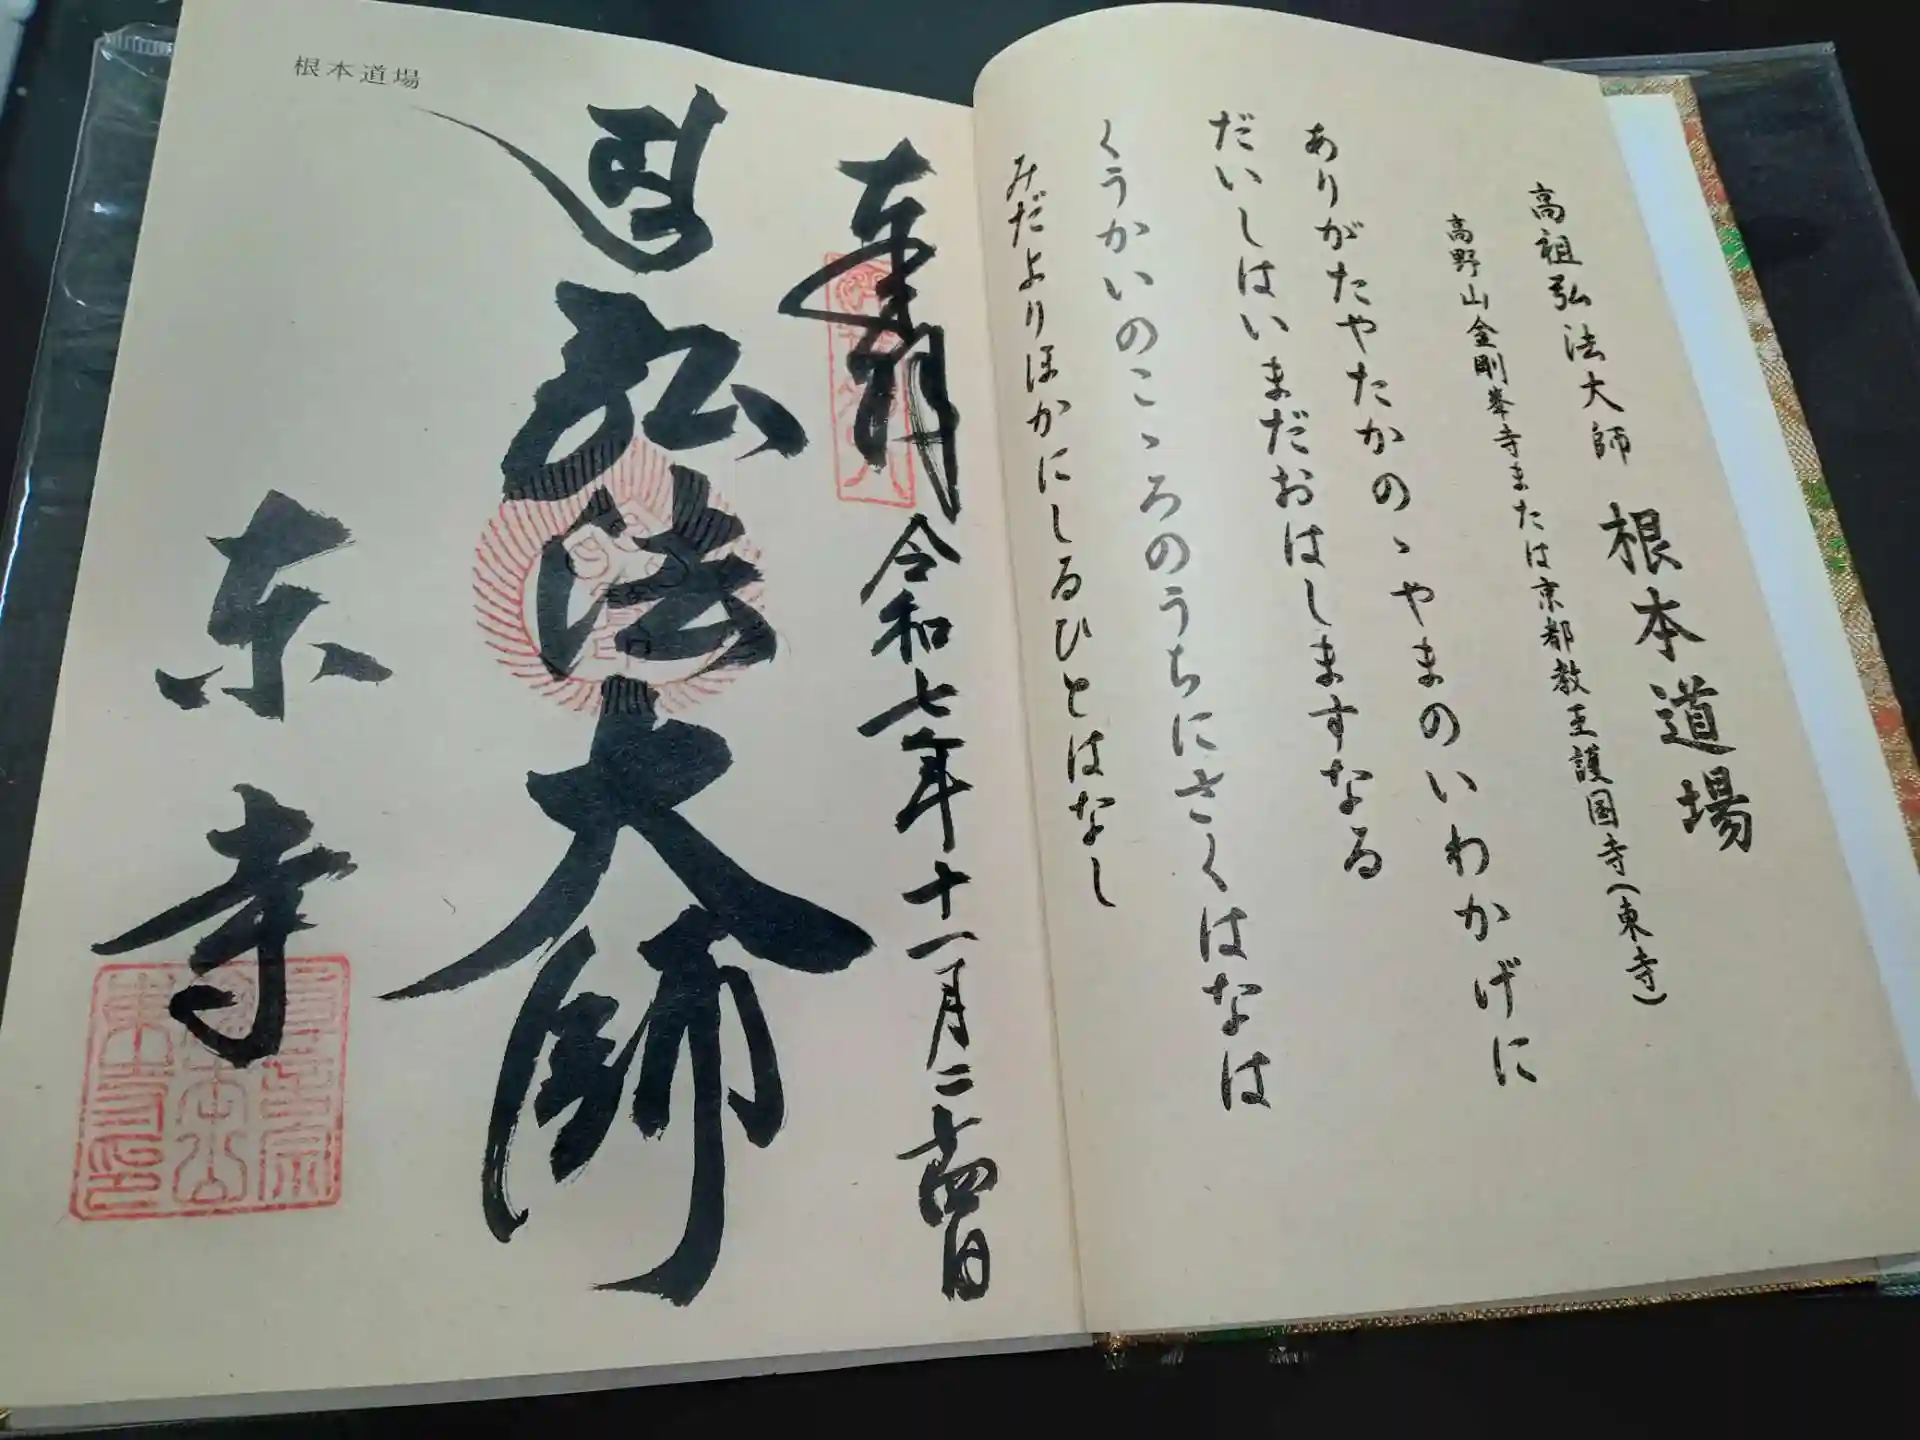 高祖弘法大師 根本道場
高野山金剛峯寺または京都教王護国寺(東寺)
ありがたやたかのゝやまのいわかげに
だいしはいまだおはしますなる
くうかいのこゝろのうちにさくはなは
みだよりほかにしるひとはなし
根本道場
奉拝
令和七年十一月二十四日
弘法大師
東寺